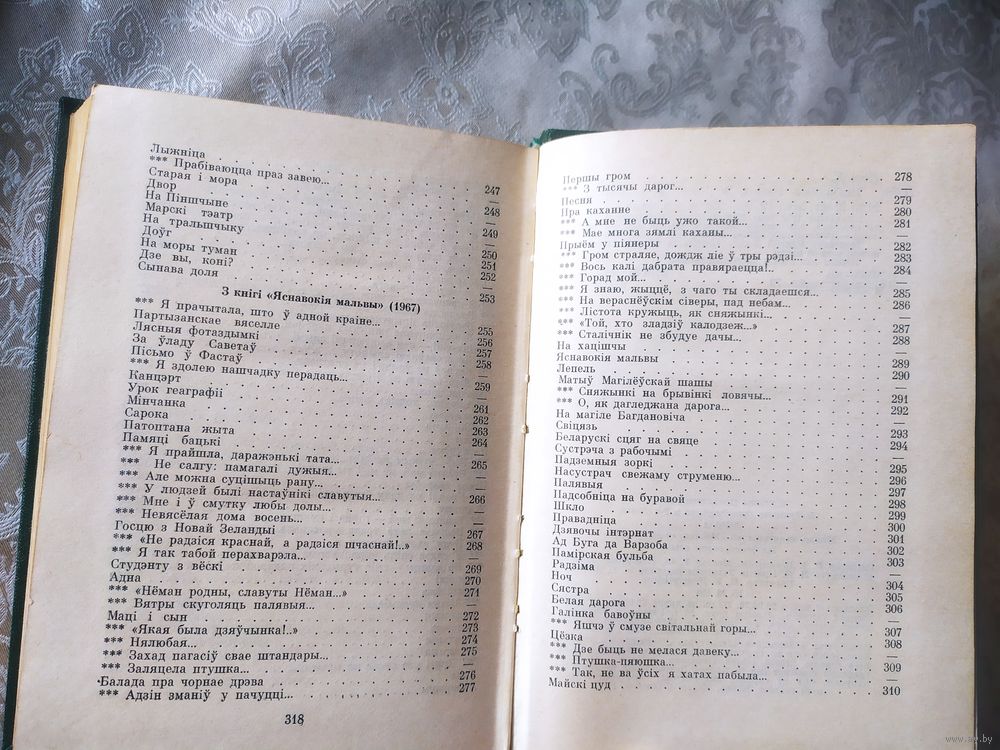 Лыжніца . . . 247
*** Прабіваюцца праз завею... —
Старая і мора . . . 248
Двор . . . —
На Піншчыне . . . 249
Марскі тэатр . . . —
На тральшчыку . . . 250
Доўг . . . 251
На моры туман . . . 252
Дзе вы, коні? . . . —
Сынава доля . . . 253
З кнігі «Яснавокія мальвы» (1967)
*** Я прачытала, што ў адной краіне... 255
Партызанскае вяселле . . . 256
Лясныя фотаздымкі . . . 257
За ўладу Саветаў . . . 258
Пісьмо ў Фастаў . . . —
*** Я здолею нашчадку перадаць... 259
Канцэрт . . . —
Урок геаграфіі . . . 261
Мінчанка . . . 262
Сарока . . . 263
Патоптана жыта . . . 264
Памяці бацькі . . . —
*** Я прайшла, даражэнькі тата... 265
*** Не салгу: памагалі дужыя... —
*** Але можна суцішыць рану... —
*** У людзей былі настаўнікі славутыя... 266
*** Мне і ў смутку любы долы... —
*** Невясёлая дома восень... —
Госцю з Новай Зеландыі . . . 267
*** «Не радзіся краснай, а радзіся шчаснай!..» 268
*** Я так табой перахварэла... —
Студэнту з вёскі . . . 269
Адна . . . 270
*** «Нёман родны, славуты Нёман...» 271
*** Вятры скуголяць палявыя... —
Маці і сын . . . 272
*** «Якая была дзяўчынка!..» 273
*** Нялюбая... 274
*** Захад пагасіў свае штандары... 275
*** Заляцела птушка... —
Балада пра чорнае дрэва . . . 276
*** Адзін зманіў у пачуцці... 277
318
Першы гром . . . 278
*** З тысячы дарог... —
Песня . . . 279
Пра каханне . . . 280
*** А мне не быць ужо такой... 281
*** Мае многа зямлі каханы... —
Прыём у піянеры . . . 282
*** Гром страляе, дождж ліе ў тры рэдзі... 283
*** Вось калі дабрата правяраецца!.. 284
*** Горад мой... —
*** Я знаю, жыццё, з чаго ты складаешся... 285
*** На вераснёўскім сіверы, пад небам... 286
*** Лістота кружыць, як сняжынкі... —
*** «Той, хто зладзіў калодзеж...» 287
*** Сталічнік не збудуе дачы... 288
На хацішчы . . . —
Яснавокія мальвы . . . 289
Лепель . . . 290
Матыў Магілёўскай шашы . . . —
*** Сняжынкі на брывінкі ловячы... 291
*** О, як дагледжана дарога... 292
На магіле Багдановіча . . . —
Свіцязь . . . 293
Беларускі сцяг на свяце . . . 294
Сустрэча з рабочымі . . . —
Падземныя зоркі . . . 295
Насустрач свежаму струменю... 296
Палявыя . . . 297
Падсобніца на буравой . . . 298
Шкло . . . 299
Правадніца . . . 300
Дзявочы інтэрнат . . . 301
Ад Буга да Варзоба . . . 302
Памірская бульба . . . 303
Радзіма . . . —
Ноч . . . 304
Сястра . . . 305
Белая дарога . . . 306
Галінка бавоўны . . . —
*** Яшчэ ў смузе світальнай горы... 307
Цёзка . . . 308
*** Дзе быць не мелася давеку... —
*** Птушка-пяюшка... 309
*** Так, не ва ўсіх я хатах пабыла... —
Майскі цуд . . . 310
www.ay.by